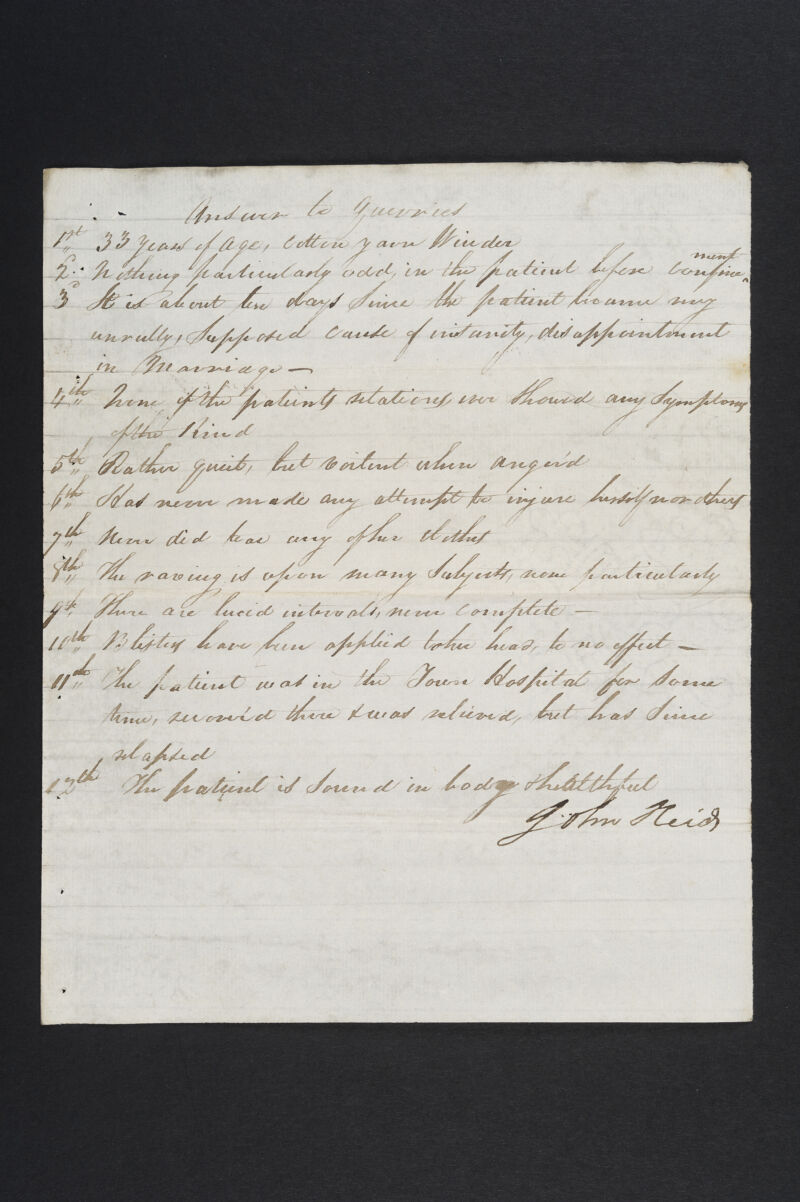 Answer to Querries
1st 33 Years of Age, Cotton yarn Winder
2d Nothing particularly odd, in the patient before confinement
3d It is about ten days since the patient became very
unrully, Supposed cause of insanity, disappointment
in Marriage —
4th None of the patients relations ever Showed any Symptoms
of the Kind
5th Rather quiet, but voilent when anger'd
6th Has never made any attempt to injure herself nor others
7th Never did tear any of her Clothes
8th The raving is upon many Subjects, none particularly
9th There are lucid intervals, never complete —
10th Blisters have been applied to her head, to no effect —
11th The patient was in the Town Hospital for some
time, recover'd there & was relieved, but has Since
relapsed
12th The patient is Sound in body & healthfull
John Reid